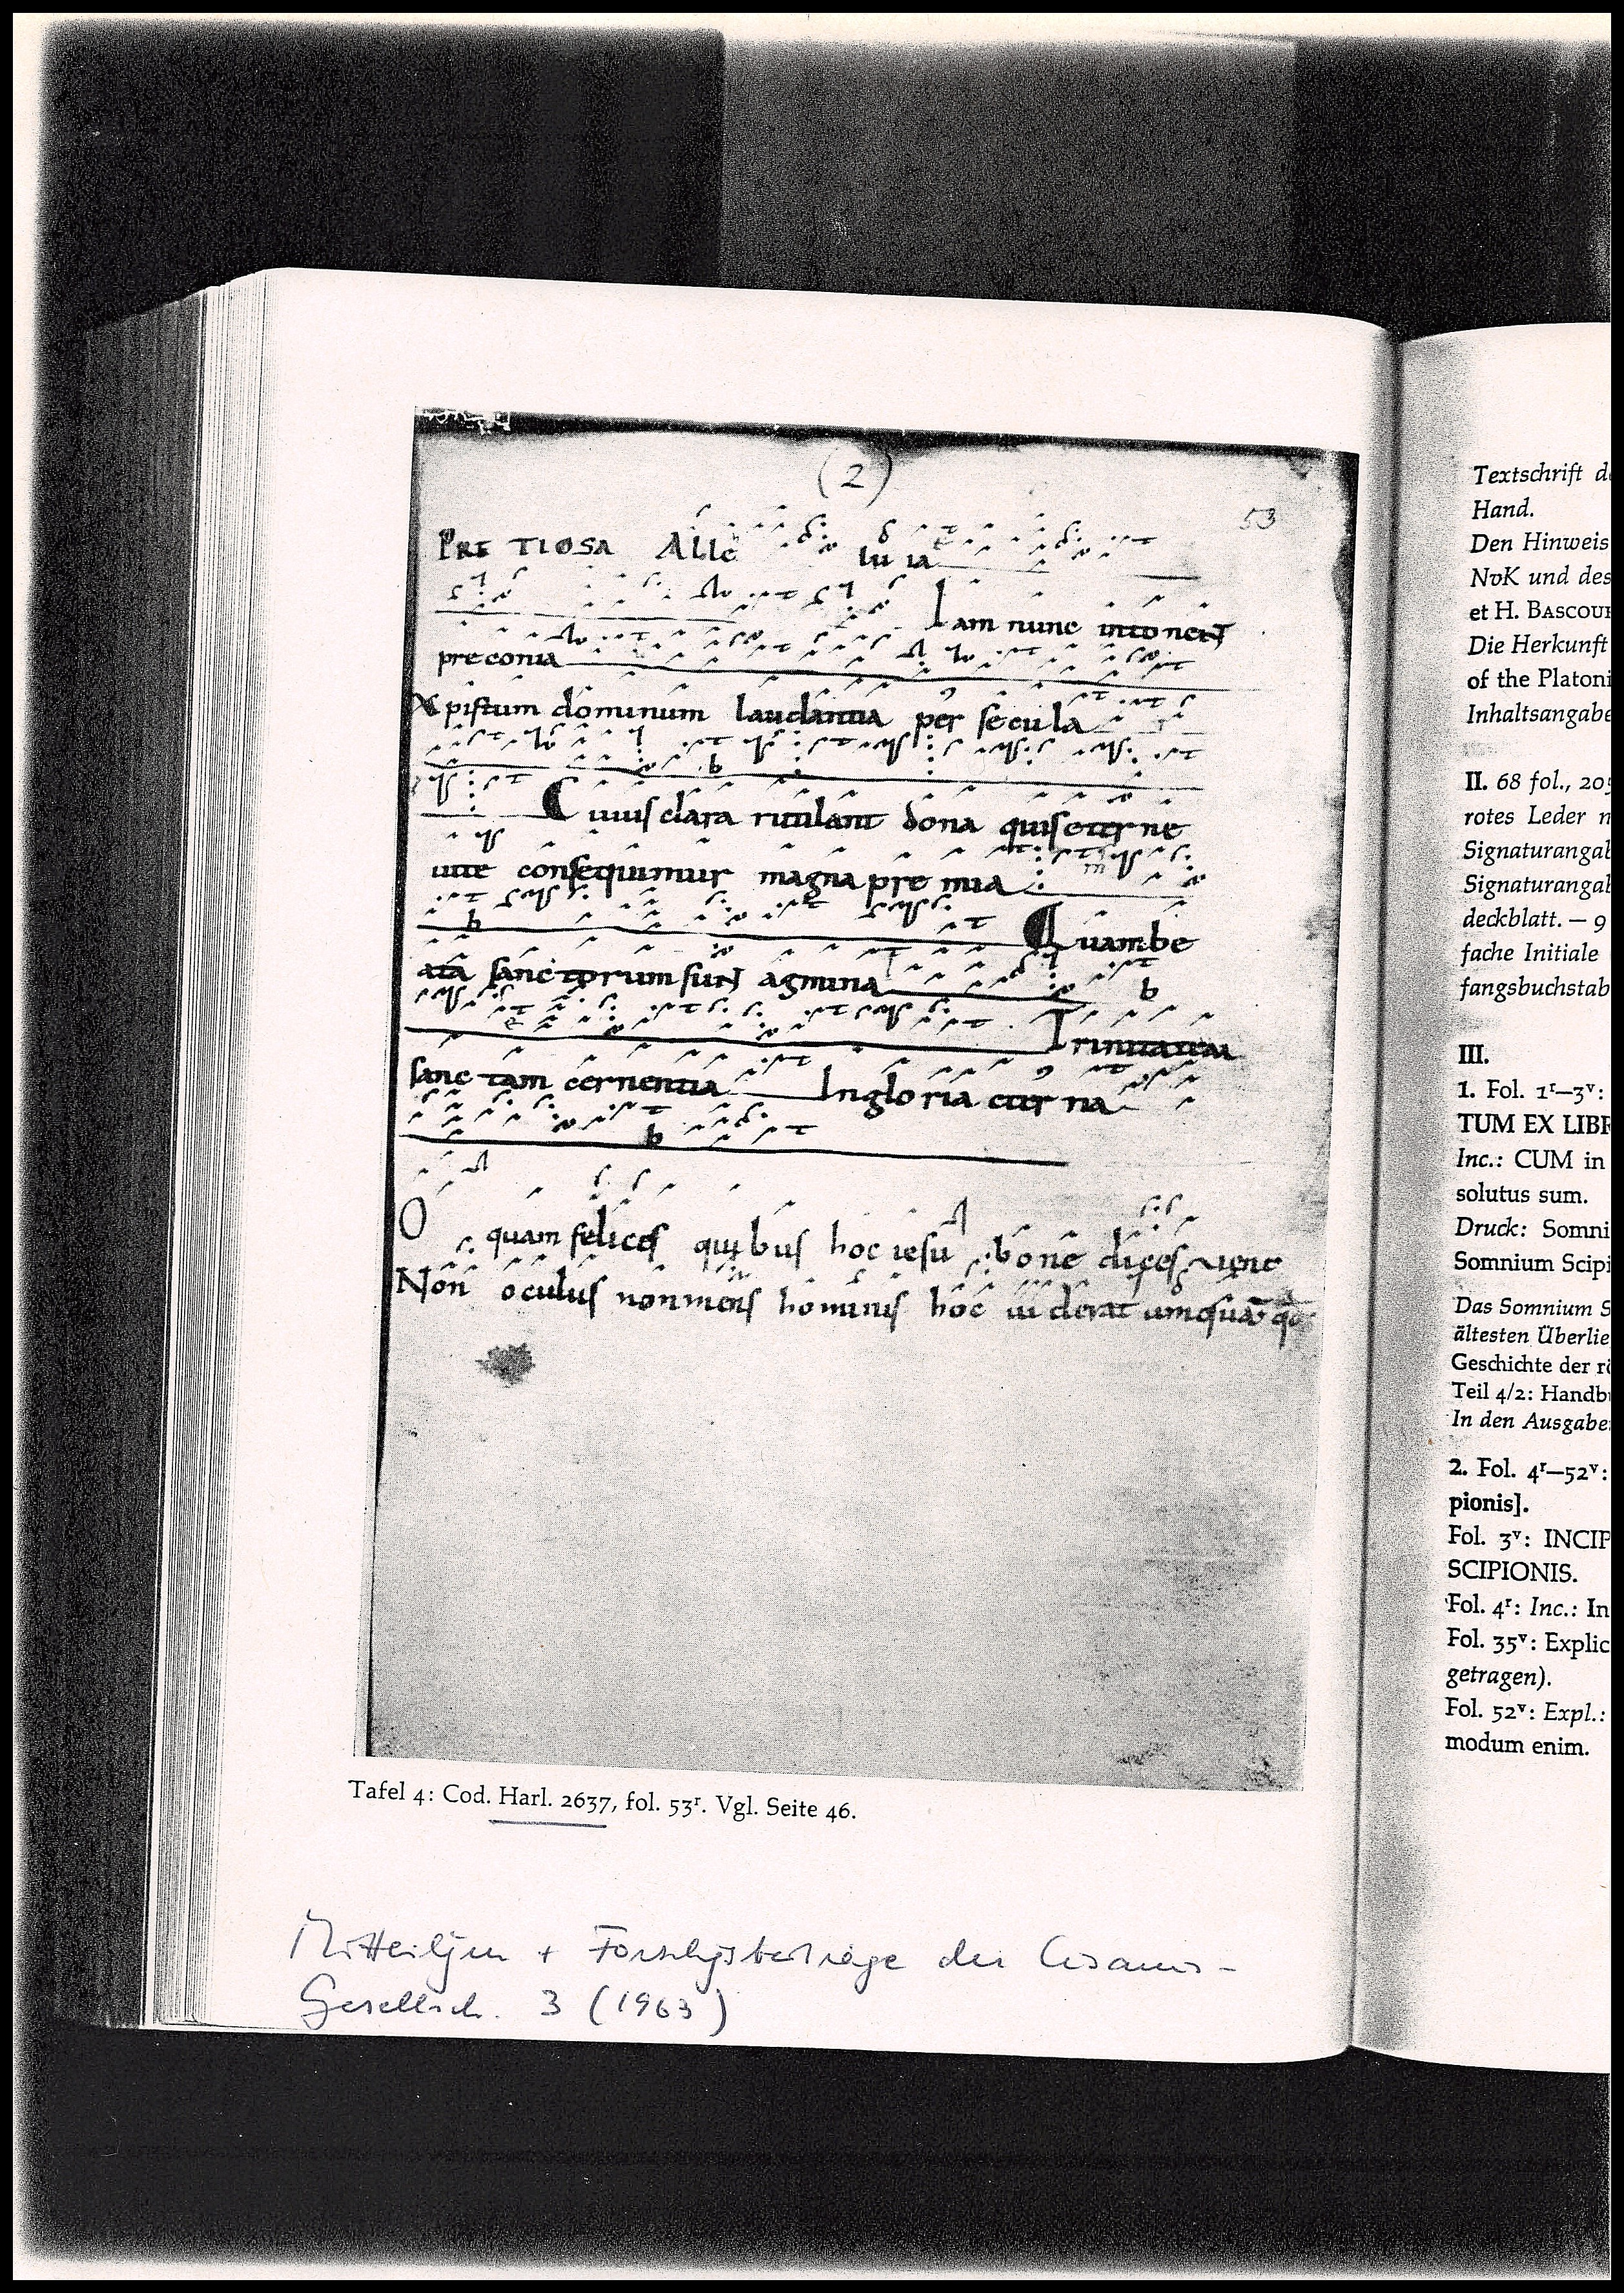 (2)
53
PRETIOSA Alle lu ia
Iam nunc intonent
preconia
Xpistum dominum laudantia per secula
Cuius clara rutilant dona quis eterne
uite consequimur magna premia
b
m
Quam be
b
ata sanctorum sunt agmina
b
Trinitatem
sanctam cernentia In gloria eter na
b
O quam felices quibus hoc iesu bone dices uenite
Non oculus non mens hominis hoc uiderat umquā
Tafel 4: Cod. Harl. 2637, fol. 53r. Vgl. Seite 46.
Mitteilgen + Forschgsbeiträge der Cusanus-
Gesellsch. 3 (1963)
Textschrift
Hand.
Den Hinweis
NvK und des
et H. BASCOUR
Die Herkunft
of the Platoni
Inhaltsangabe
II. 68 fol., 205
rotes Leder
Signaturangab
Signaturangab
deckblatt. — 9
fache Initiale
fangsbuchstab
III.
1. Fol. 1r—3v:
TUM EX LIBR
Inc.: CUM in
solutus sum.
Druck: Somni
Somnium Scipi
Das Somnium S
ältesten Überlie
Geschichte der rö
Teil 4/2: Handbu
In den Ausgabe
2. Fol. 4r—52v:
pionis].
Fol. 3v: INCIP
SCIPIONIS.
Fol. 4r: Inc.: In
Fol. 35v: Explic
getragen).
Fol. 52v: Expl.:
modum enim.